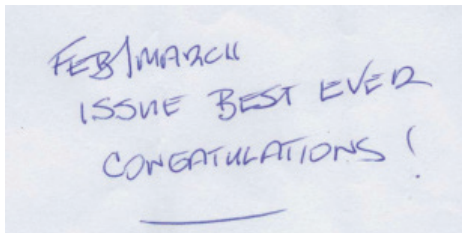 FEB/MARCH
ISSUE BEST EVER
CONGATULATIONS!